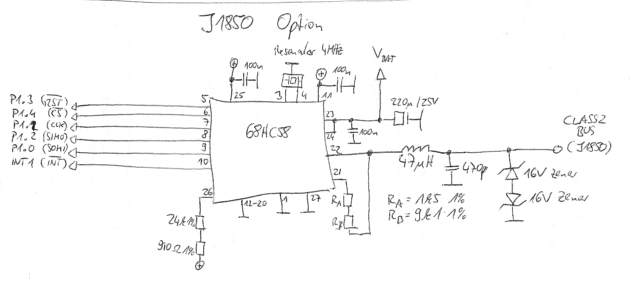 J1850 Option
Resonator 4MHz
VBAT
100n
100n
P1.3 (RST)
P1.4 (CS)
P1.1 (CLK)
P1.2 (SIMO)
P1.0 (SOMI)
INT1 (INT)
5
6
7
8
9
10
25
3
4
11
68HC58
23
24
22
21
220µ/25V
100n
CLASS2
BUS
(J1850)
47µH
470p
16V Zener
16V Zener
RA
RB
RA = 1k5 1%
RB = 9k1 1%
26
12-20
1
27
24k 1%
910Ω 1%